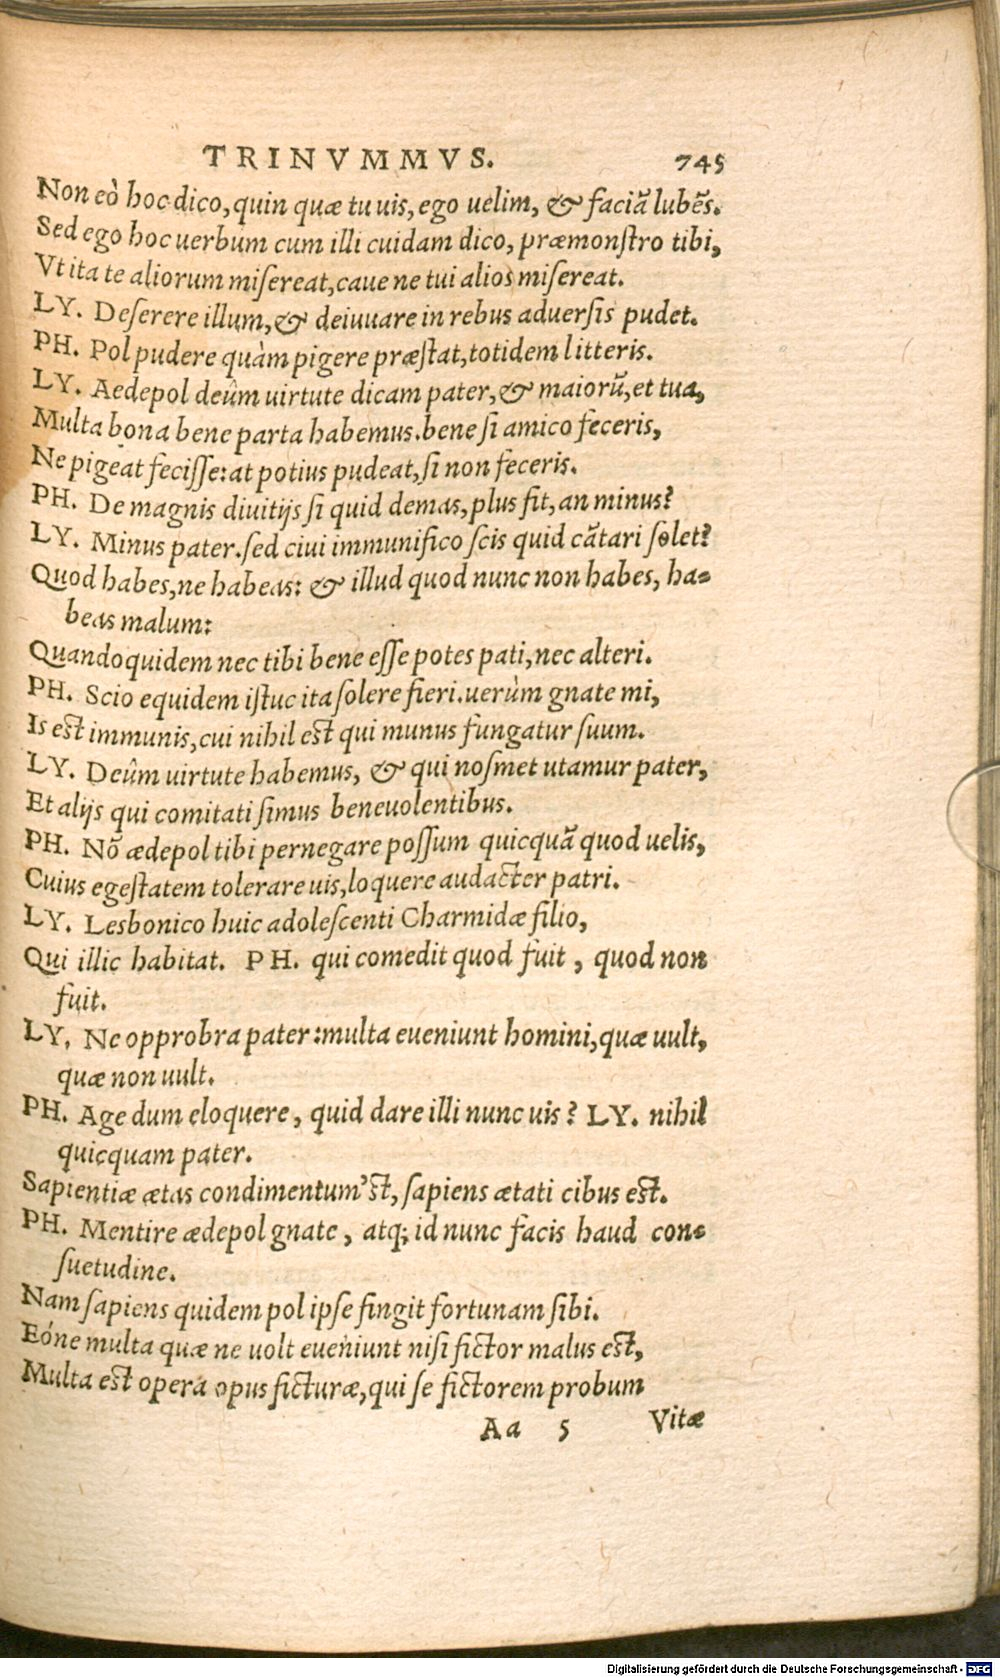 TRINVMMVS. 745
Non eò hoc dico, quin quæ tu uis, ego uelim, & faciā lubēs.
Sed ego hoc uerbum cum illi cuidam dico, præmonſtro tibi,
Vt ita te aliorum miſereat, caue ne tui alios miſereat.
LY. Deſerere illum, & deiuuare in rebus aduerſis pudet.
PH. Pol pudere quàm pigere præſtat, totidem litteris.
LY. Aedepol deûm uirtute dicam pater, & maiorū, et tua,
Multa bona bene parta habemus. bene ſi amico feceris,
Ne pigeat feciſſe: at potius pudeat, ſi non feceris.
PH. De magnis diuitijs ſi quid demas, plus fit, an minus?
LY. Minus pater. ſed ciui immunifico ſcis quid cātari ſolet?
Quod habes, ne habeas: & illud quod nunc non habes, ha-
beas malum:
Quandoquidem nec tibi bene eſſe potes pati, nec alteri.
PH. Scio equidem iſtuc ita ſolere fieri. uerùm gnate mi,
Is est immunis, cui nihil est qui munus fungatur ſuum.
LY. Deûm uirtute habemus, & qui noſmet utamur pater,
Et alijs qui comitati ſimus beneuolentibus.
PH. Nō ædepol tibi pernegare poſſum quicquā quod uelis,
Cuius egeſtatem tolerare uis, loquere audacter patri.
LY. Lesbonico huic adoleſcenti Charmidæ filio,
Qui illic habitat. PH. qui comedit quod fuit, quod non
fuit.
LY. Ne opprobra pater: multa eueniunt homini, quæ uult,
quæ non uult.
PH. Age dum eloquere, quid dare illi nunc uis? LY. nihil
quicquam pater.
Sapientiæ ætas condimentum'st, ſapiens ætati cibus est.
PH. Mentire ædepol gnate, atq; id nunc facis haud con-
ſuetudine.
Nam ſapiens quidem pol ipſe fingit fortunam ſibi.
Eóne multa quæ ne uolt eueniunt niſi fictor malus est,
Multa est opera opus ficturæ, qui ſe fictorem probum
Aa 5 Vitæ
Digitalisierung gefördert durch die Deutsche Forschungsgemeinschaft - DFG